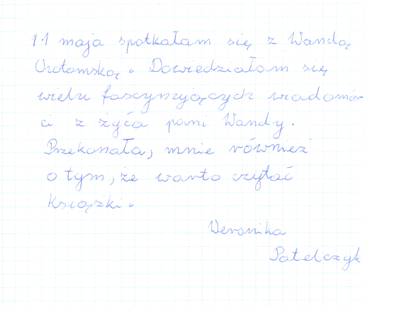 11 maja spotkałam się z Wandą
Chotomską. Dowiedziałam się
wielu fascynujących wiadomoś
ci z życia pani Wandy.
Przekonała, mnie również
o tym, że warto czytać
książki.
Weronika
Patelczyk